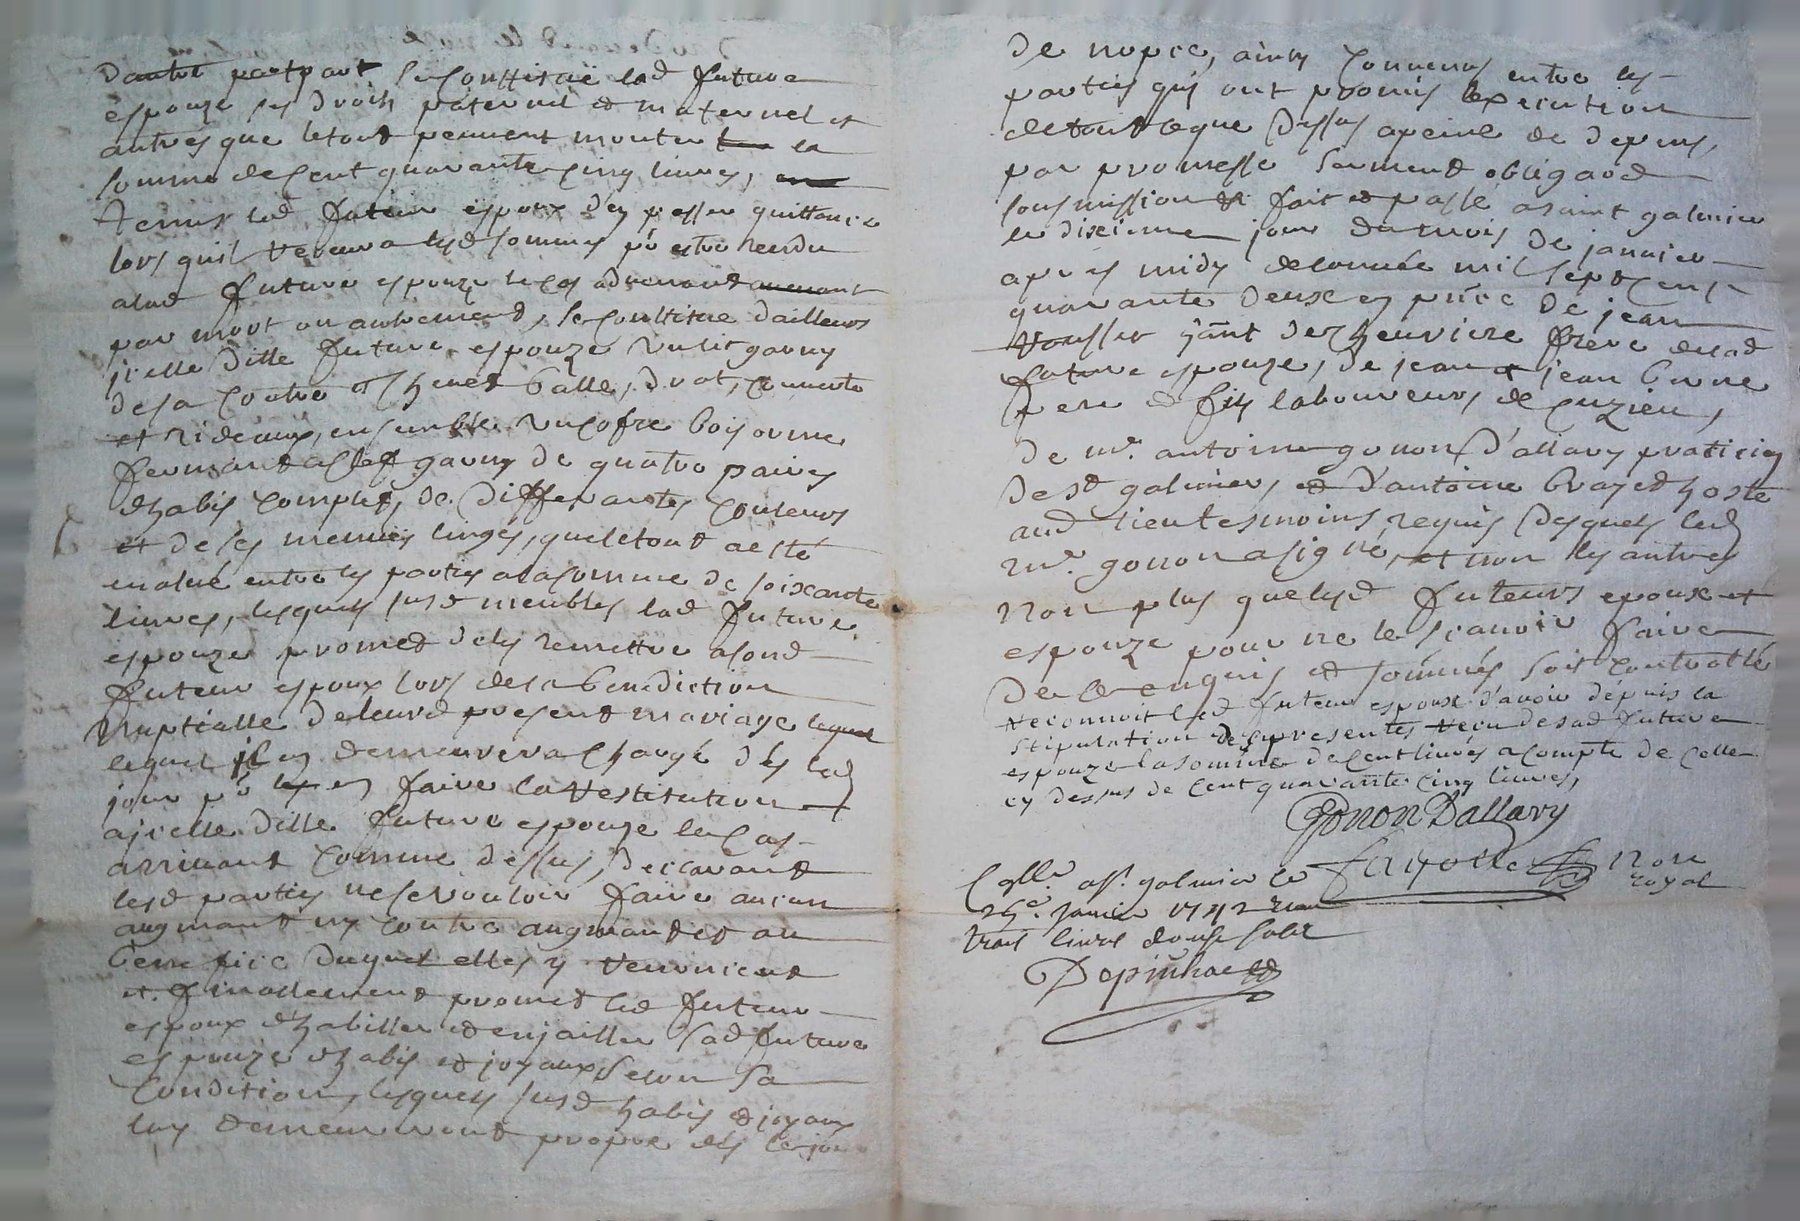 Dautre part part se constitue lad future
espouze ses droits paternel et maternel et
autres que le tout peuvent monter la
somme de cent quarante cinq livres,
lad futeur espoux d'en passer quittance
lors quil recevra lesd sommes pr estre rendu
alad future espouze le cas advenant avenant
par mort ou autrement, se constitue dailleurs
jcelle ditte future espouze un lit garny
de sa coutre Chevet balle, drat, couverte
et rideaux, ensemble un cofre bois orme
fermant a clef garny de quatre paires
dhabis complet, de differantes couleurs
et de ses menues linges, que le tout a esté
evalué entre les parties a la somme de soixante
livres, lesquels susd meubles lad future
espouze promet de les remettre a sond
futeur espoux lors de la benediction
nuptialle de leurd present mariage lequel
lequel il en demeurera chargé des led
jour pr en faire la restitution
a jcelle ditte future espouze le cas
arrivant comme dessus, declarant
lesd parties ne se vouloir faire aucun
augmant ny contre augmant et au
benefice duquel elles y renoncent
et finallement promet led futeur
espoux dhabiller et enjailler sad future
espouze dhabis et joyaux selon sa
condition, lesquels susd habis et joyaux
luy demeureront propre des le jour
de nopce, ainsy convenus entre les
parties quy ont promis lexecution
de tout ce que dessus a peine de depens,
par promesse serment obligaod
sousmission fait et passé a saint galmier
le dixieme jour du mois de janvier
apres midy de lannée mil sept cent
quarante deux en pnce de jean
Rousset gant de Cheuvriere frere de lad
future espouze, de jean et jean brune
pere et fils laboureurs de Cuzieu,
de mr. antoine gonon d'allary praticien
de st galmier, et d'antoine brazet hoste
aud lieu tesmoins requis desquels led
mr. gonon a signé, et non les autres
non plus que lesd futeurs epoux et
espouze pour ne le scavoir faire
de ce enquis et sommés soit controllé
reconnoit led futeur espoux d'avoir dépuis la
stipulation des presentes recu de sad future
espouze la somme de cent livres a compte de celle
cy dessus de cent quarante cinq livres,
Gonon Dallary
Collé. a st. galmier le Fayolle Nore
royal
25e. janvier 1742 recu
trois livres douse sols
Depinhac